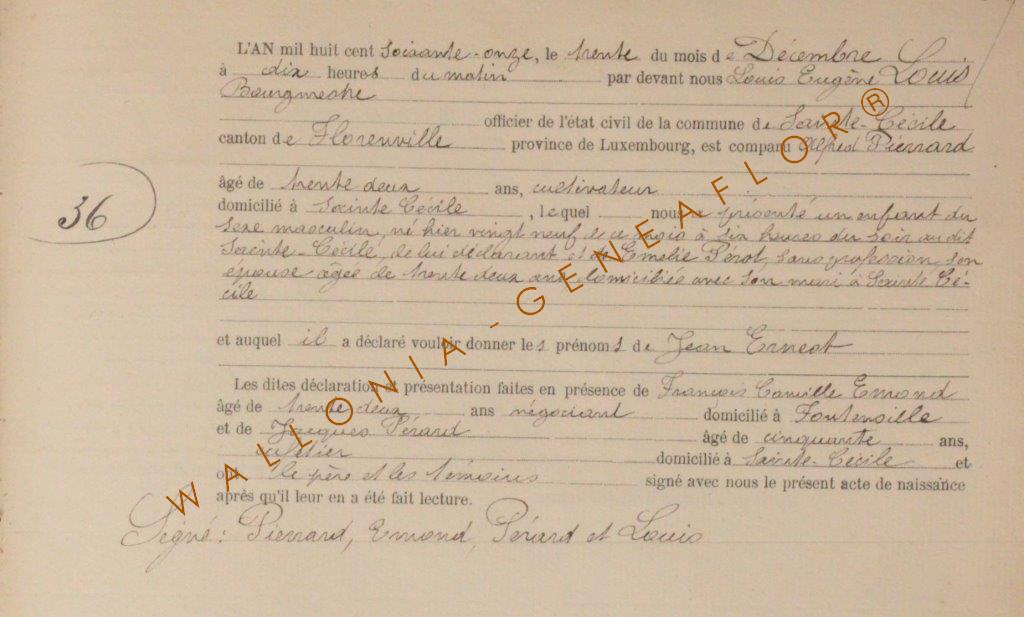 L'AN mil huit cent soixante-onze, le trente du mois de Décembre
à dix heures du matin par devant nous Louis Eugène Louis
Bourgmestre
officier de l'état civil de la commune de Sainte-Cécile
canton de Florenville province de Luxembourg, est comparu Alfred Pierrard
âgé de trente deux ans, cultivateur
36
domicilié à Sainte Cécile, lequel nous a présenté un enfant du
sexe masculin, né hier vingt neuf de ce mois à six heures du soir audit
Sainte-Cécile, de lui déclarant et de Emelie Pérot, sans profession, son
épouse âgée de trente deux ans domiciliée avec son mari à Sainte Cé-
cile
et auquel il a déclaré vouloir donner les prénoms de Jean Ernest
Les dites déclaration et présentation faites en présence de François Camille Emond
âgé de trente deux ans négociant domicilié à Fontenoille
et de Jacques Pérard âgé de cinquante ans,
domicilié à Sainte-Cécile et
ont le père et les témoins signé avec nous le présent acte de naissance
après qu'il leur en a été fait lecture.
Signé: Pierrard, Emond, Pérard et Louis
WALLONIA-GENEAFLOR®